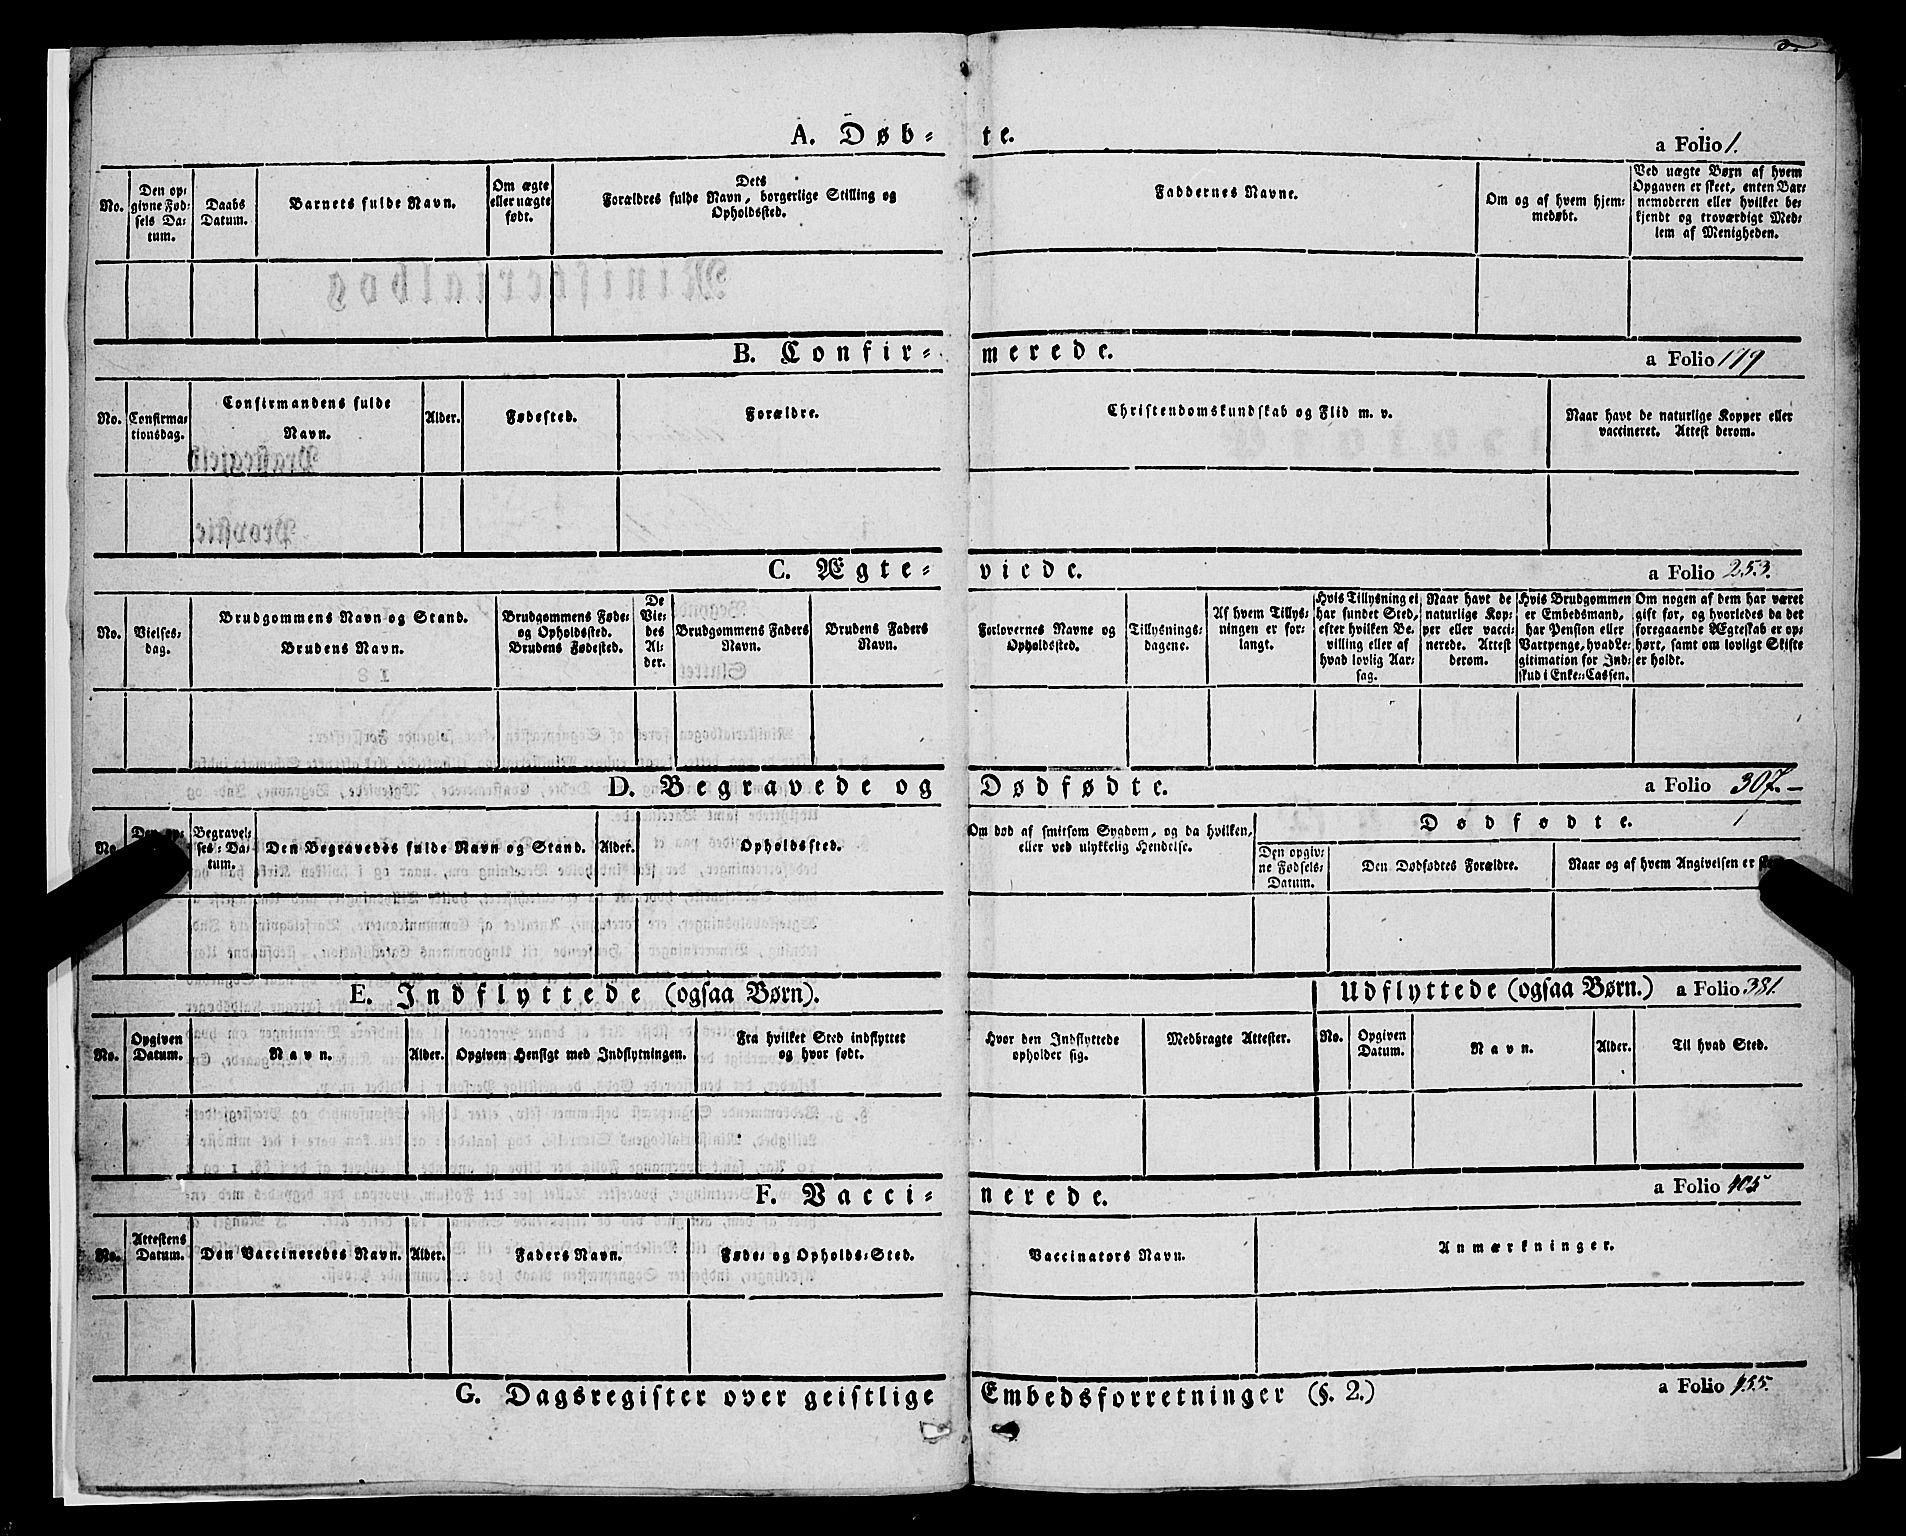 A. Døb- te. a Folio 1.
No.
Den op-
givne Fød-
sels Da-
tum.
Daabs
Datum.
Barnets fulde Navn.
Om ægte
eller uægte
født.
Dets
Forældres fulde Navn, borgerlige Stilling og
Opholdssted.
Faddernes Navne.
Om og af hvem hjem-
medøbt.
Ved uægte Børn af hvem
Opgaven er skeet, enten Bar-
nemoderen eller hvilket be-
kjendt og troværdigt Med-
lem af Menigheden.
B. Confir- merede. a Folio 179
No.
Confirma-
tionsdag.
Confirmandens fulde
Navn.
Alder.
Fødested.
Forældre.
Christendomskundskab og Flid m. v.
Naar havt de naturlige Kopper eller
vaccineret. Attest derom.
C. Ægte- viede. a Folio 253.
No.
Vielses-
dag.
Brudgommens Navn og Stand.
Brudens Navn.
Brudgommens Føde-
og Opholdssted.
Brudens Fødested.
De
Vie-
des
Al-
der.
Brudgommens Faders
Navn.
Brudens Faders
Navn.
Forlovernes Navne og
Opholdssted.
Tillysnings-
dagene.
Af hvem Tillys-
ningen er for-
langt.
Hvis Tillysning ei
har fundet Sted,
efter hvilken Be-
villing eller af
hvad lovlig Aar-
sag.
Naar havt de
naturlige Kop-
per eller vacci-
nerede. Attest
derom.
Hvis Brudgommen
er Embedsmand,
har Pension eller
Vartpenge, hvad Le-
gitimation for Ind-
skud i Enke-Cassen.
Om nogen af dem har været
gift før, og hvorledes da det
foregaaende Ægteskab er op-
hørt, samt om lovligt Skifte
er holdt.
D. Begravede og Dødfødte. a Folio 307.-
Begravel-
ses-Da-
tum.
Den Begravedes fulde Navn og Stand.
Alder.
Opholdssted.
Om død af smitsom Sygdom, og da hvilken,
eller ved ulykkelig Hendelse.
Dødfødte.
Den opgiv-
ne Fødsels-
Datum.
Den Dødfødtes Forældre.
Naar og af hvem Angivelsen er
E. Indflyttede (ogsaa Børn). Udflyttede (ogsaa Børn.) a Folio 381.
No.
Opgiven
Datum.
Navn.
Alder.
Opgiven Hensigt med Indflytningen.
Fra hvilket Sted indflyttet
og hvor født.
Hvor den Indflyttede
opholder sig.
Medbragte Attester.
No.
Opgiven
Datum.
Navn.
Alder.
Til hvad Sted.
F. Vacci- nerede. a Folio 405
No.
Attestens
Datum.
Den Vaccineredes Navn.
Alder.
Faders Navn.
Føde- og Opholds-Sted.
Vaccinators Navn.
Anmærkninger.
G. Dagsregister over geistlige Embedsforretninger (§. 2.) a Folio 455.